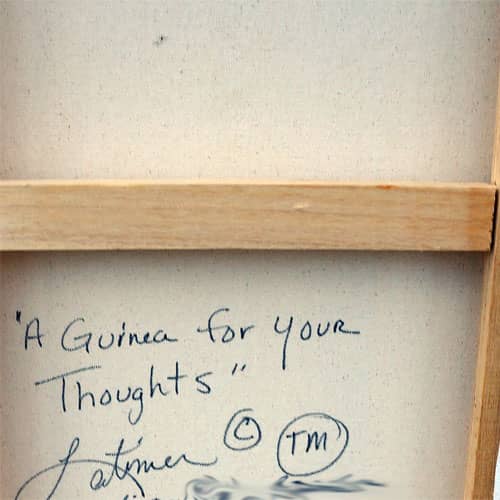 "A Guinea for your
Thoughts"
Latimer © TM